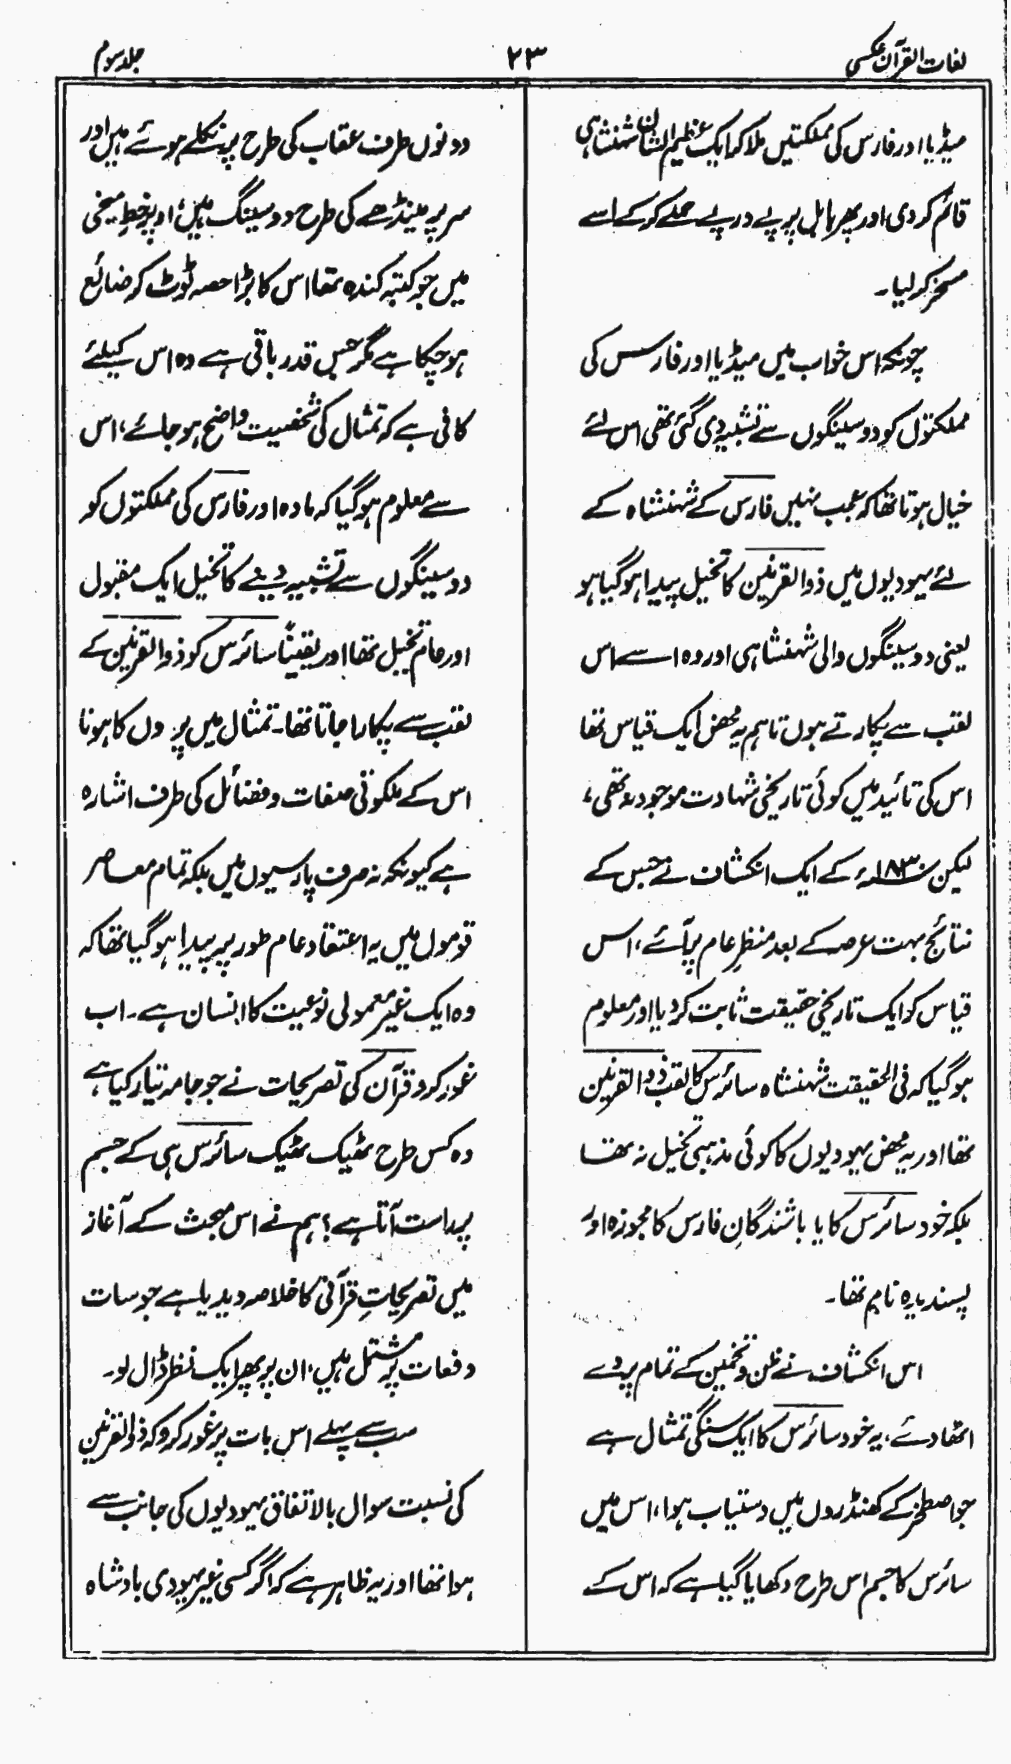 لغات القرآن عکسی
۲۳
جلد سوم
میڈیا اور فارس کی مملکتیں ملا کر ایک عظیم الشان شہنشاہی
قائم کر دی اور پھر بابل پر پے در پے حملے کر کے اسے
مسخر کر لیا۔
چونکہ اس خواب میں میڈیا اور فارس کی
مملکتوں کو دو سینگوں سے تشبیہ دی گئی تھی اس لئے
خیال ہوتا تھا کہ عجب نہیں فارس کے شہنشاہ کے
لئے یہودیوں میں ذوالقرنین کا تخیل پیدا ہو گیا ہو
یعنی دو سینگوں والی شہنشاہی اور وہ اسے اس
لقب سے پکارتے ہوں تاہم یہ محض ایک قیاس تھا
اس کی تائید میں کوئی تاریخی شہادت موجود نہ تھی،
لیکن ۱۸۳۸ء کے ایک انکشاف نے جس کے
نتائج بہت عرصہ کے بعد منظر عام پر آئے، اس
قیاس کو ایک تاریخی حقیقت ثابت کر دیا اور معلوم
ہو گیا کہ فی الحقیقت شہنشاہ سائرس کا لقب ذوالقرنین
تھا اور یہ محض یہودیوں کا کوئی مذہبی تخیل نہ تھا
بلکہ خود سائرس کا یا باشندگانِ فارس کا مجوزہ اور
پسندیدہ نام تھا۔
اس انکشاف نے ظن و تخمین کے تمام پردے
اٹھا دئے، یہ خود سائرس کا ایک سنگی تمثال ہے
جو اصطخر کے کھنڈروں میں دستیاب ہوا، اس میں
سائرس کا جسم اس طرح دکھایا گیا ہے کہ اس کے
دونوں طرف عقاب کی طرح پر نکلے ہوئے ہیں اور
سر پر مینڈھے کی طرح دو سینگ ہیں، اوپر خطِ میخی
میں جو کتبہ کندہ تھا اس کا بڑا حصہ ٹوٹ کر ضائع
ہو چکا ہے مگر جس قدر باقی ہے وہ اس کیلئے
کافی ہے کہ تمثال کی شخصیت واضح ہو جائے، اس
سے معلوم ہو گیا کہ مادہ اور فارس کی مملکتوں کو
دو سینگوں سے تشبیہ دینے کا تخیل ایک مقبول
اور عام تخیل تھا اور یقیناً سائرس کو ذوالقرنین کے
لقب سے پکارا جاتا تھا۔ تمثال میں پروں کا ہونا
اس کے ملکوتی صفات و فضائل کی طرف اشارہ
ہے کیونکہ نہ صرف پارسیوں میں بلکہ تمام معاصر
قوموں میں یہ اعتقاد عام طور پر پیدا ہو گیا تھا کہ
وہ ایک غیر معمولی نوعیت کا انسان ہے۔ اب
غور کرو قرآن کی تصریحات نے جو جامہ تیار کیا ہے
وہ کس طرح ٹھیک ٹھیک سائرس ہی کے جسم
پر راست آتا ہے؟ ہم نے اس مبحث کے آغاز
میں تصریحاتِ قرآنی کا خلاصہ دیدیا ہے جو سات
دفعات پر مشتمل ہیں، ان پر پھر ایک نظر ڈال لو۔
سب سے پہلے اس بات پر غور کرو کہ ذوالقرنین
کی نسبت سوال بالاتفاق یہودیوں کی جانب سے
ہوا تھا اور یہ ظاہر ہے کہ اگر کسی غیر یہودی بادشاہ